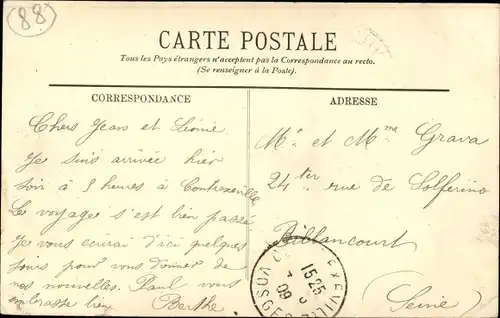 88
CARTE POSTALE
Tous les Pays étrangers n'acceptent pas la Correspondance au recto.
(Se renseigner à la Poste).
CORRESPONDANCE
Chers Jean et Léonie
Je suis arrivée hier
soir à 5 heures à Contrexeville
Le voyage s'est bien passé
Je vous écrirai d'ici quelques
jours pour vous donner de
nos nouvelles. Paul vous
embrasse bien Berthe
ADRESSE
Mr et Mme Grava
24ter rue de Solferino
Billancourt
(Seine)
EXÉVILLE
15 25
09
VOSGES